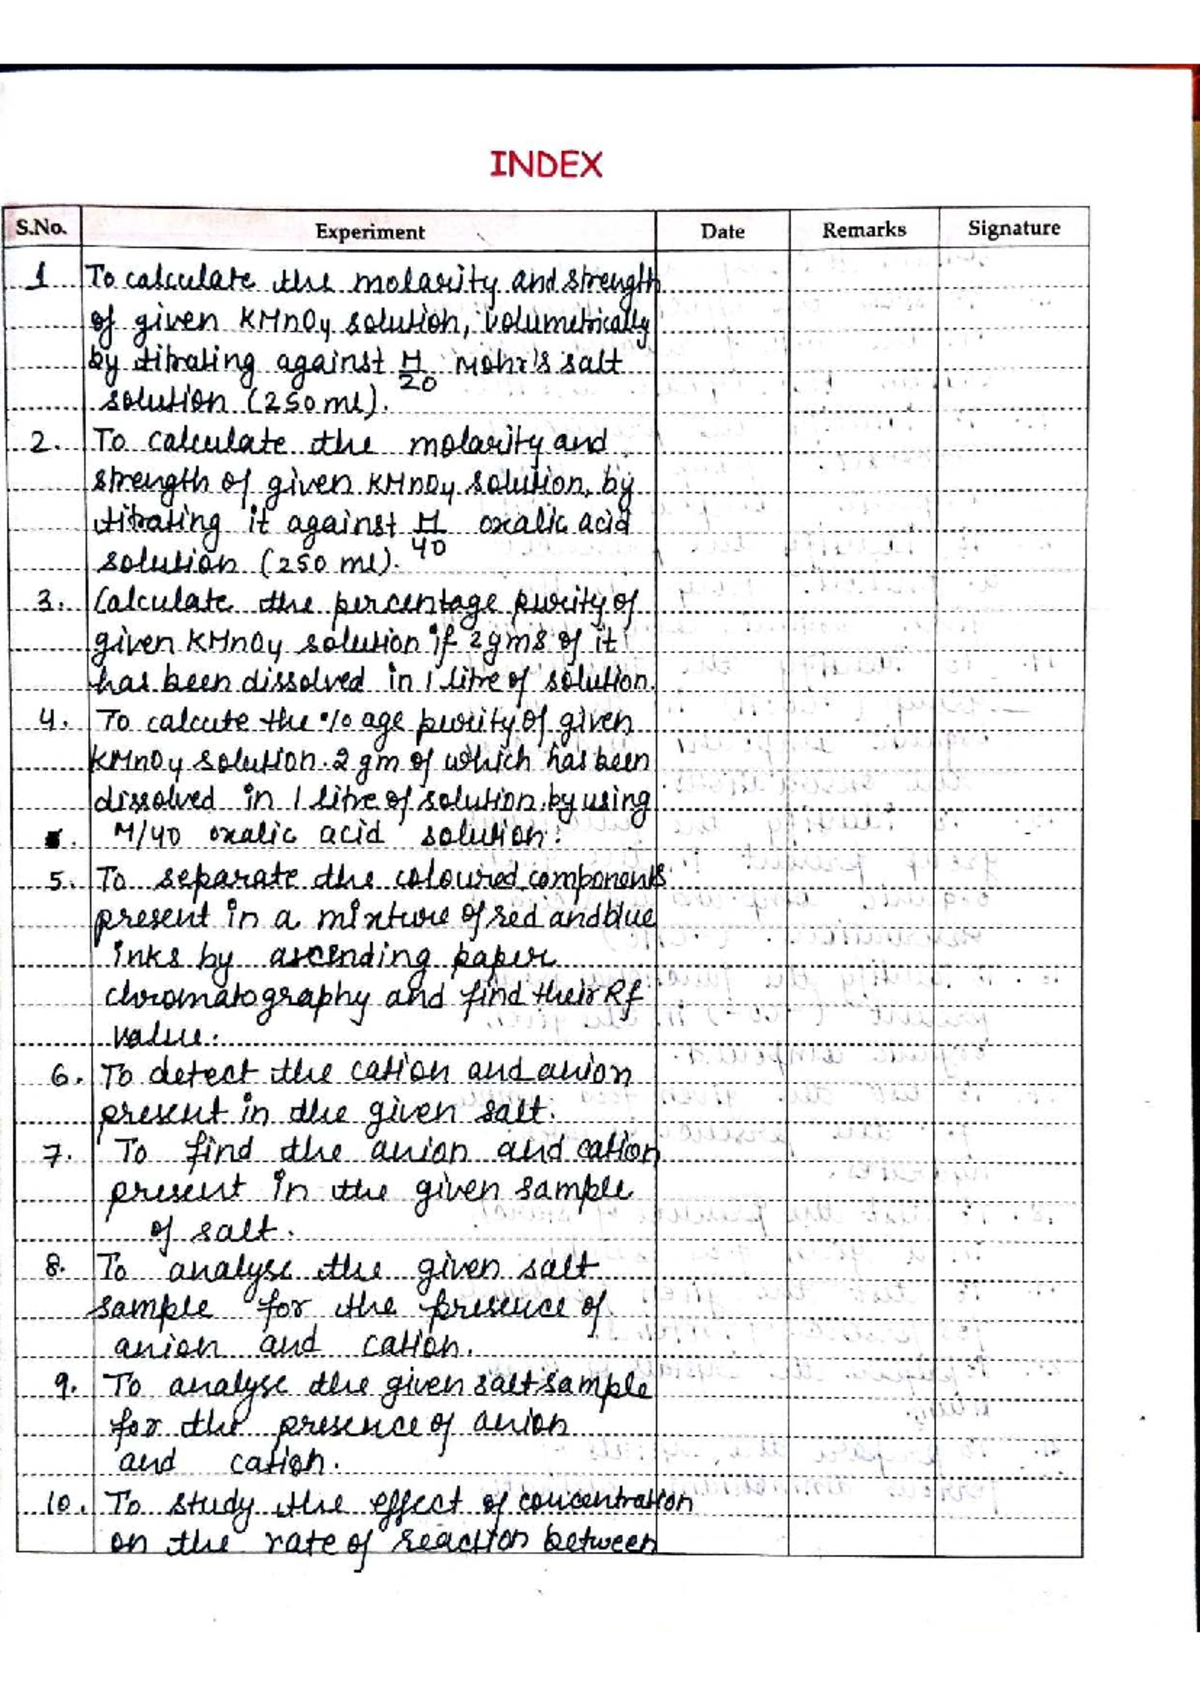 INDEX
S.No. Experiment Date Remarks Signature
1 To calculate the molarity and strength
of given KMnO4 solution, volumetrically
by titrating against M/20 Mohr's salt
solution (250 ml).
2. To calculate the molarity and
strength of given KMnO4 solution, by
titrating it against M/40 oxalic acid
solution (250 ml).
3. Calculate the percentage purity of
given KMnO4 solution if 2 gms of it
has been dissolved in 1 litre of solution.
4. To calcute the % age purity of given
KMnO4 solution. 2 gm of which has been
dissolved in 1 litre of solution by using
M/40 oxalic acid solution.
5. To separate the coloured components
present in a mixture of red and blue
inks by ascending paper
chromatography and find their Rf
value.
6. To detect the cation and anion
present in the given salt.
7. To find the anion and cation
present in the given sample
of salt.
8. To analyse the given salt
sample for the presence of
anion and cation.
9. To analyse the given salt sample
for the presence of anion
and cation.
10. To study the effect of concentration
on the rate of reaction between